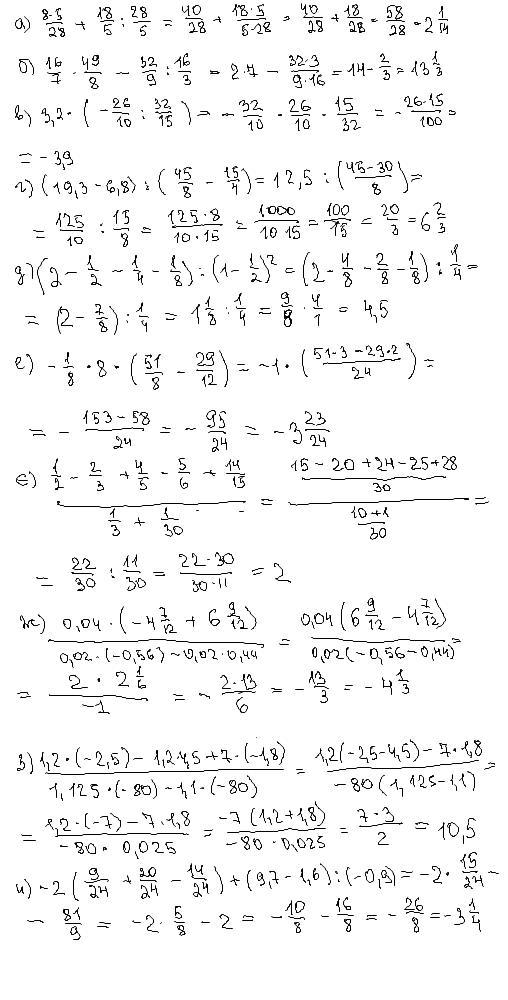 а) 8·5/28 + 18/5 : 28/5 = 40/28 + 18·5/5·28 = 40/28 + 18/28 = 58/28 = 2 1/14
б) 16/7 · 49/8 - 32/9 : 16/3 = 2·7 - 32·3/9·16 = 14 - 2/3 = 13 1/3
в) 3,2 · (-26/10 : 32/15) = -32/10 · 26/10 · 15/32 = -26·15/100 =
= -3,9
г) (19,3 - 6,8) : (45/8 - 15/4) = 12,5 : (45-30/8) =
= 125/10 : 15/8 = 125·8/10·15 = 1000/10·15 = 100/15 = 20/3 = 6 2/3
д) (2 - 1/2 - 1/4 - 1/8) : (1 - 1/2)² = (2 - 4/8 - 2/8 - 1/8) : 1/4 =
= (2 - 7/8) : 1/4 = 1 1/8 : 1/4 = 9/8 · 4/1 = 4,5
е) -1/8 · 8 · (51/8 - 29/12) = -1 · (51·3 - 29·2/24) =
= - 153-58/24 = - 95/24 = -3 23/24
є) 1/2 - 2/3 + 4/5 - 5/6 + 14/15 / 1/3 + 1/30 = 15 - 20 + 24 - 25 + 28/30 / 10+1/30 =
= 22/30 : 11/30 = 22·30/30·11 = 2
ж) 0,04 · (-4 7/12 + 6 9/12) / 0,02 · (-0,56) - 0,02 · 0,44 = 0,04 (6 9/12 - 4 7/12) / 0,02 (-0,56 - 0,44) =
= 2 · 2 1/6 / -1 = - 2·13/6 = - 13/3 = -4 1/3
з) 1,2 · (-2,5) - 1,2·4,5 + 7 · (-1,8) / 1,125 · (-80) - 1,1 · (-80) = 1,2 (-2,5 - 4,5) - 7·1,8 / -80 (1,125 - 1,1) =
= 1,2 · (-7) - 7·1,8 / -80 · 0,025 = -7 (1,2 + 1,8) / -80 · 0,025 = 7·3/2 = 10,5
и) -2 (9/24 + 20/24 - 14/24) + (9,7 - 1,6) : (-0,9) = -2 · 15/24 -
- 81/9 = -2 · 5/8 - 2 = -10/8 - 16/8 = -26/8 = -3 1/4